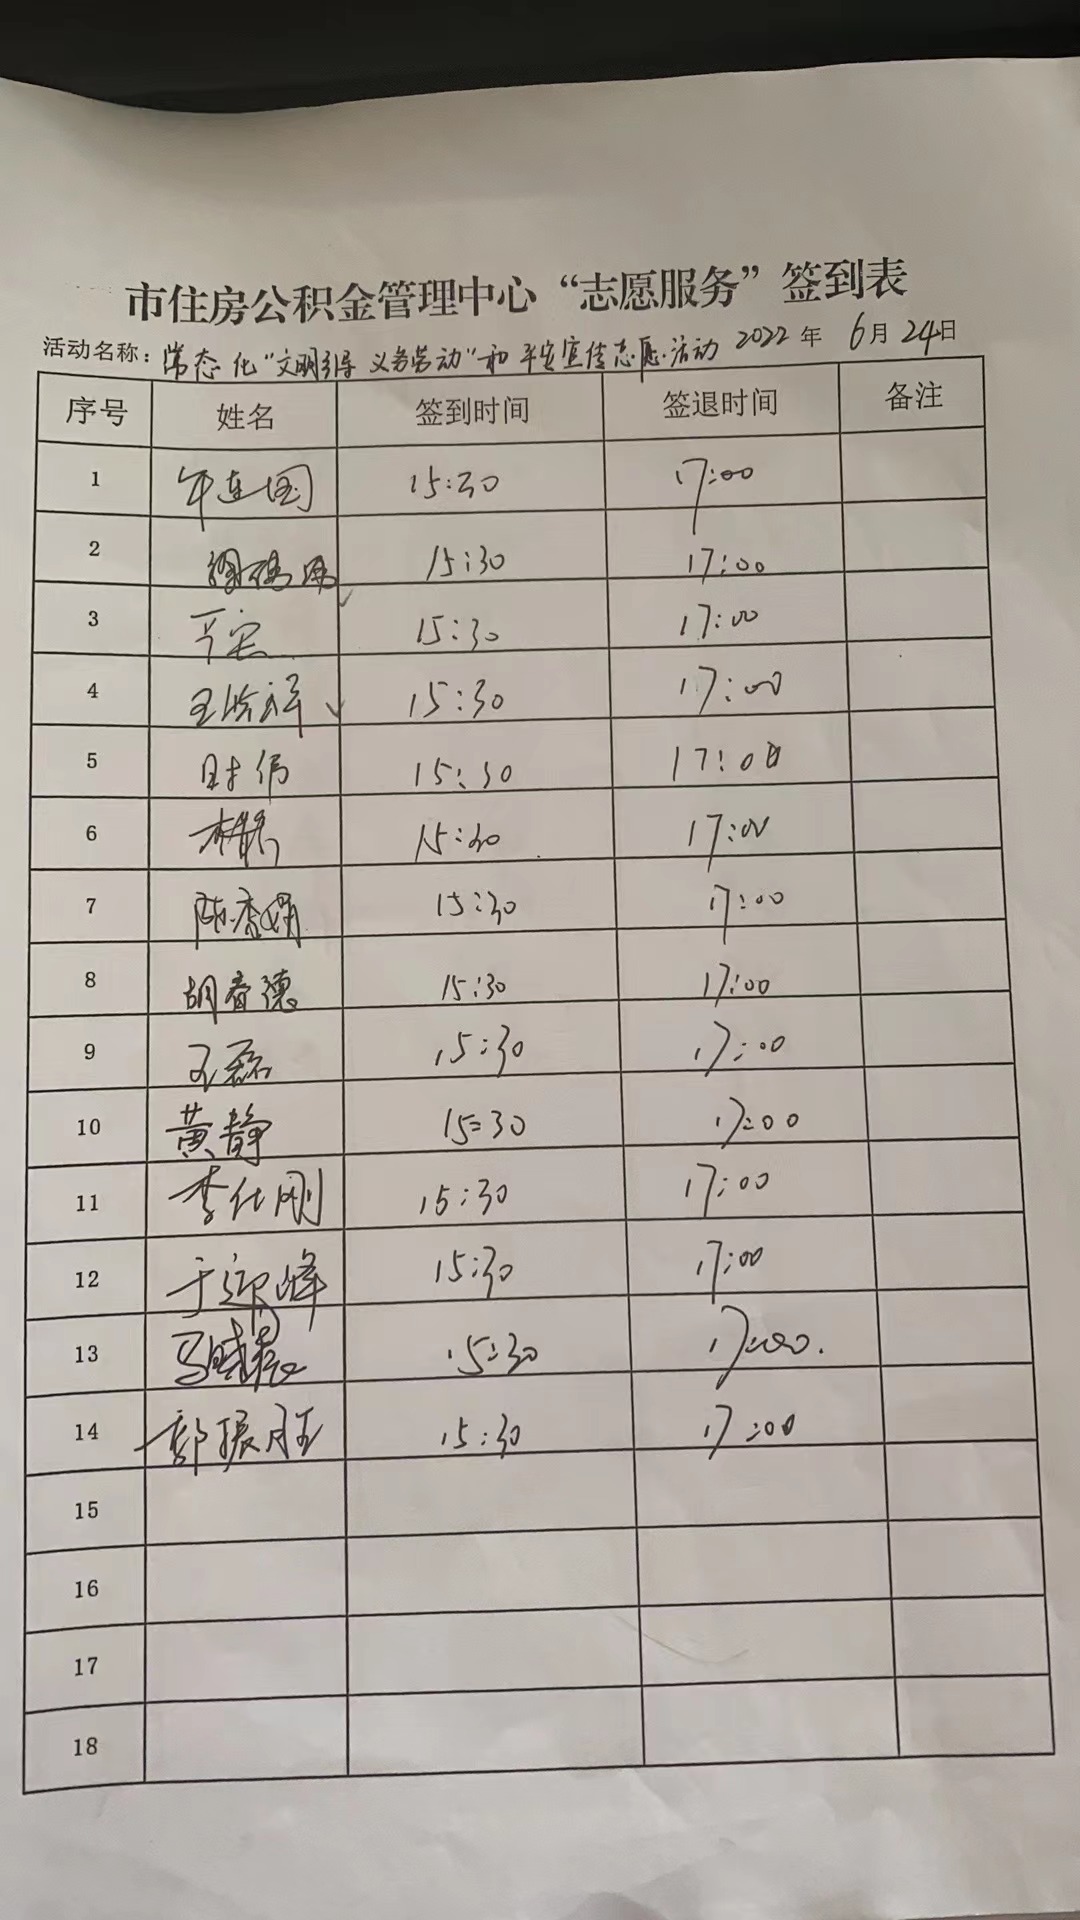 市住房公积金管理中心“志愿服务”签到表
活动名称：常态化“文明引导 义务劳动”和平安宣传志愿活动 2022年 6月24日
序号 姓名 签到时间 签退时间 备注
1 年连国 15:30 17:00
2 15:30 17:00
3 15:30 17:00
4 王 15:30 17:00
5 伟 15:30 17:00
6 林静 15:30 17:00
7 陈香娟 15:30 17:00
8 胡春德 15:30 17:00
9 王磊 15:30 17:00
10 黄静 15:30 17:00
11 李仕刚 15:30 17:00
12 于迎峰 15:30 17:00
13 马 15:30 17:00.
14 郭振 15:30 17:00
15
16
17
18